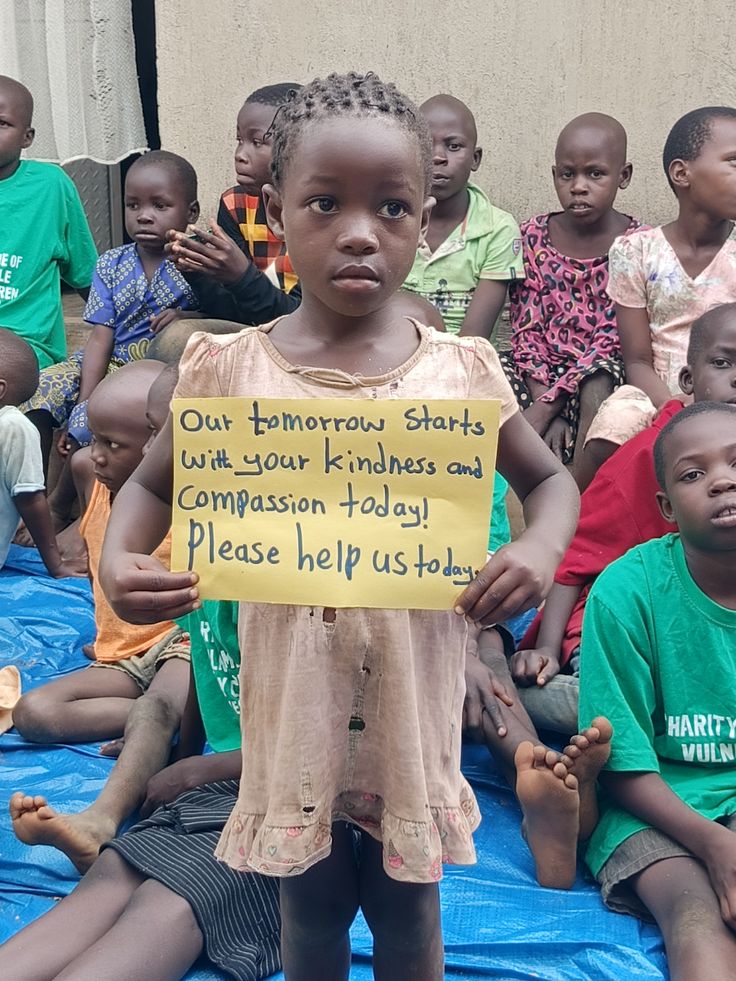 Our tomorrow starts
with your kindness and
compassion today!
Please help us today
E OF
LE
REN
HARITY
VULN